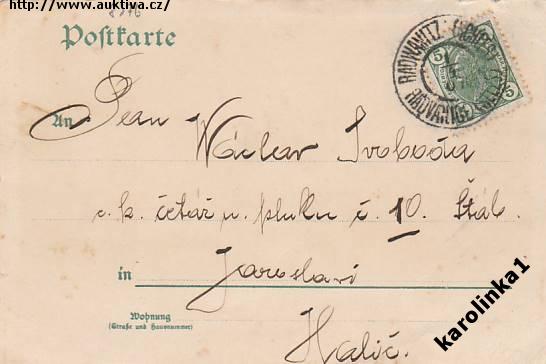 http://www.auktiva.cz/
Postkarte
5 5
RADWANITZ
An Pean
Václav Svoboda
c. k. četař u. pluku č. 10. Štáb.
in Jaroslavi
Wohnung
(Straße und Hausnummer)
Halič.
karolinka1